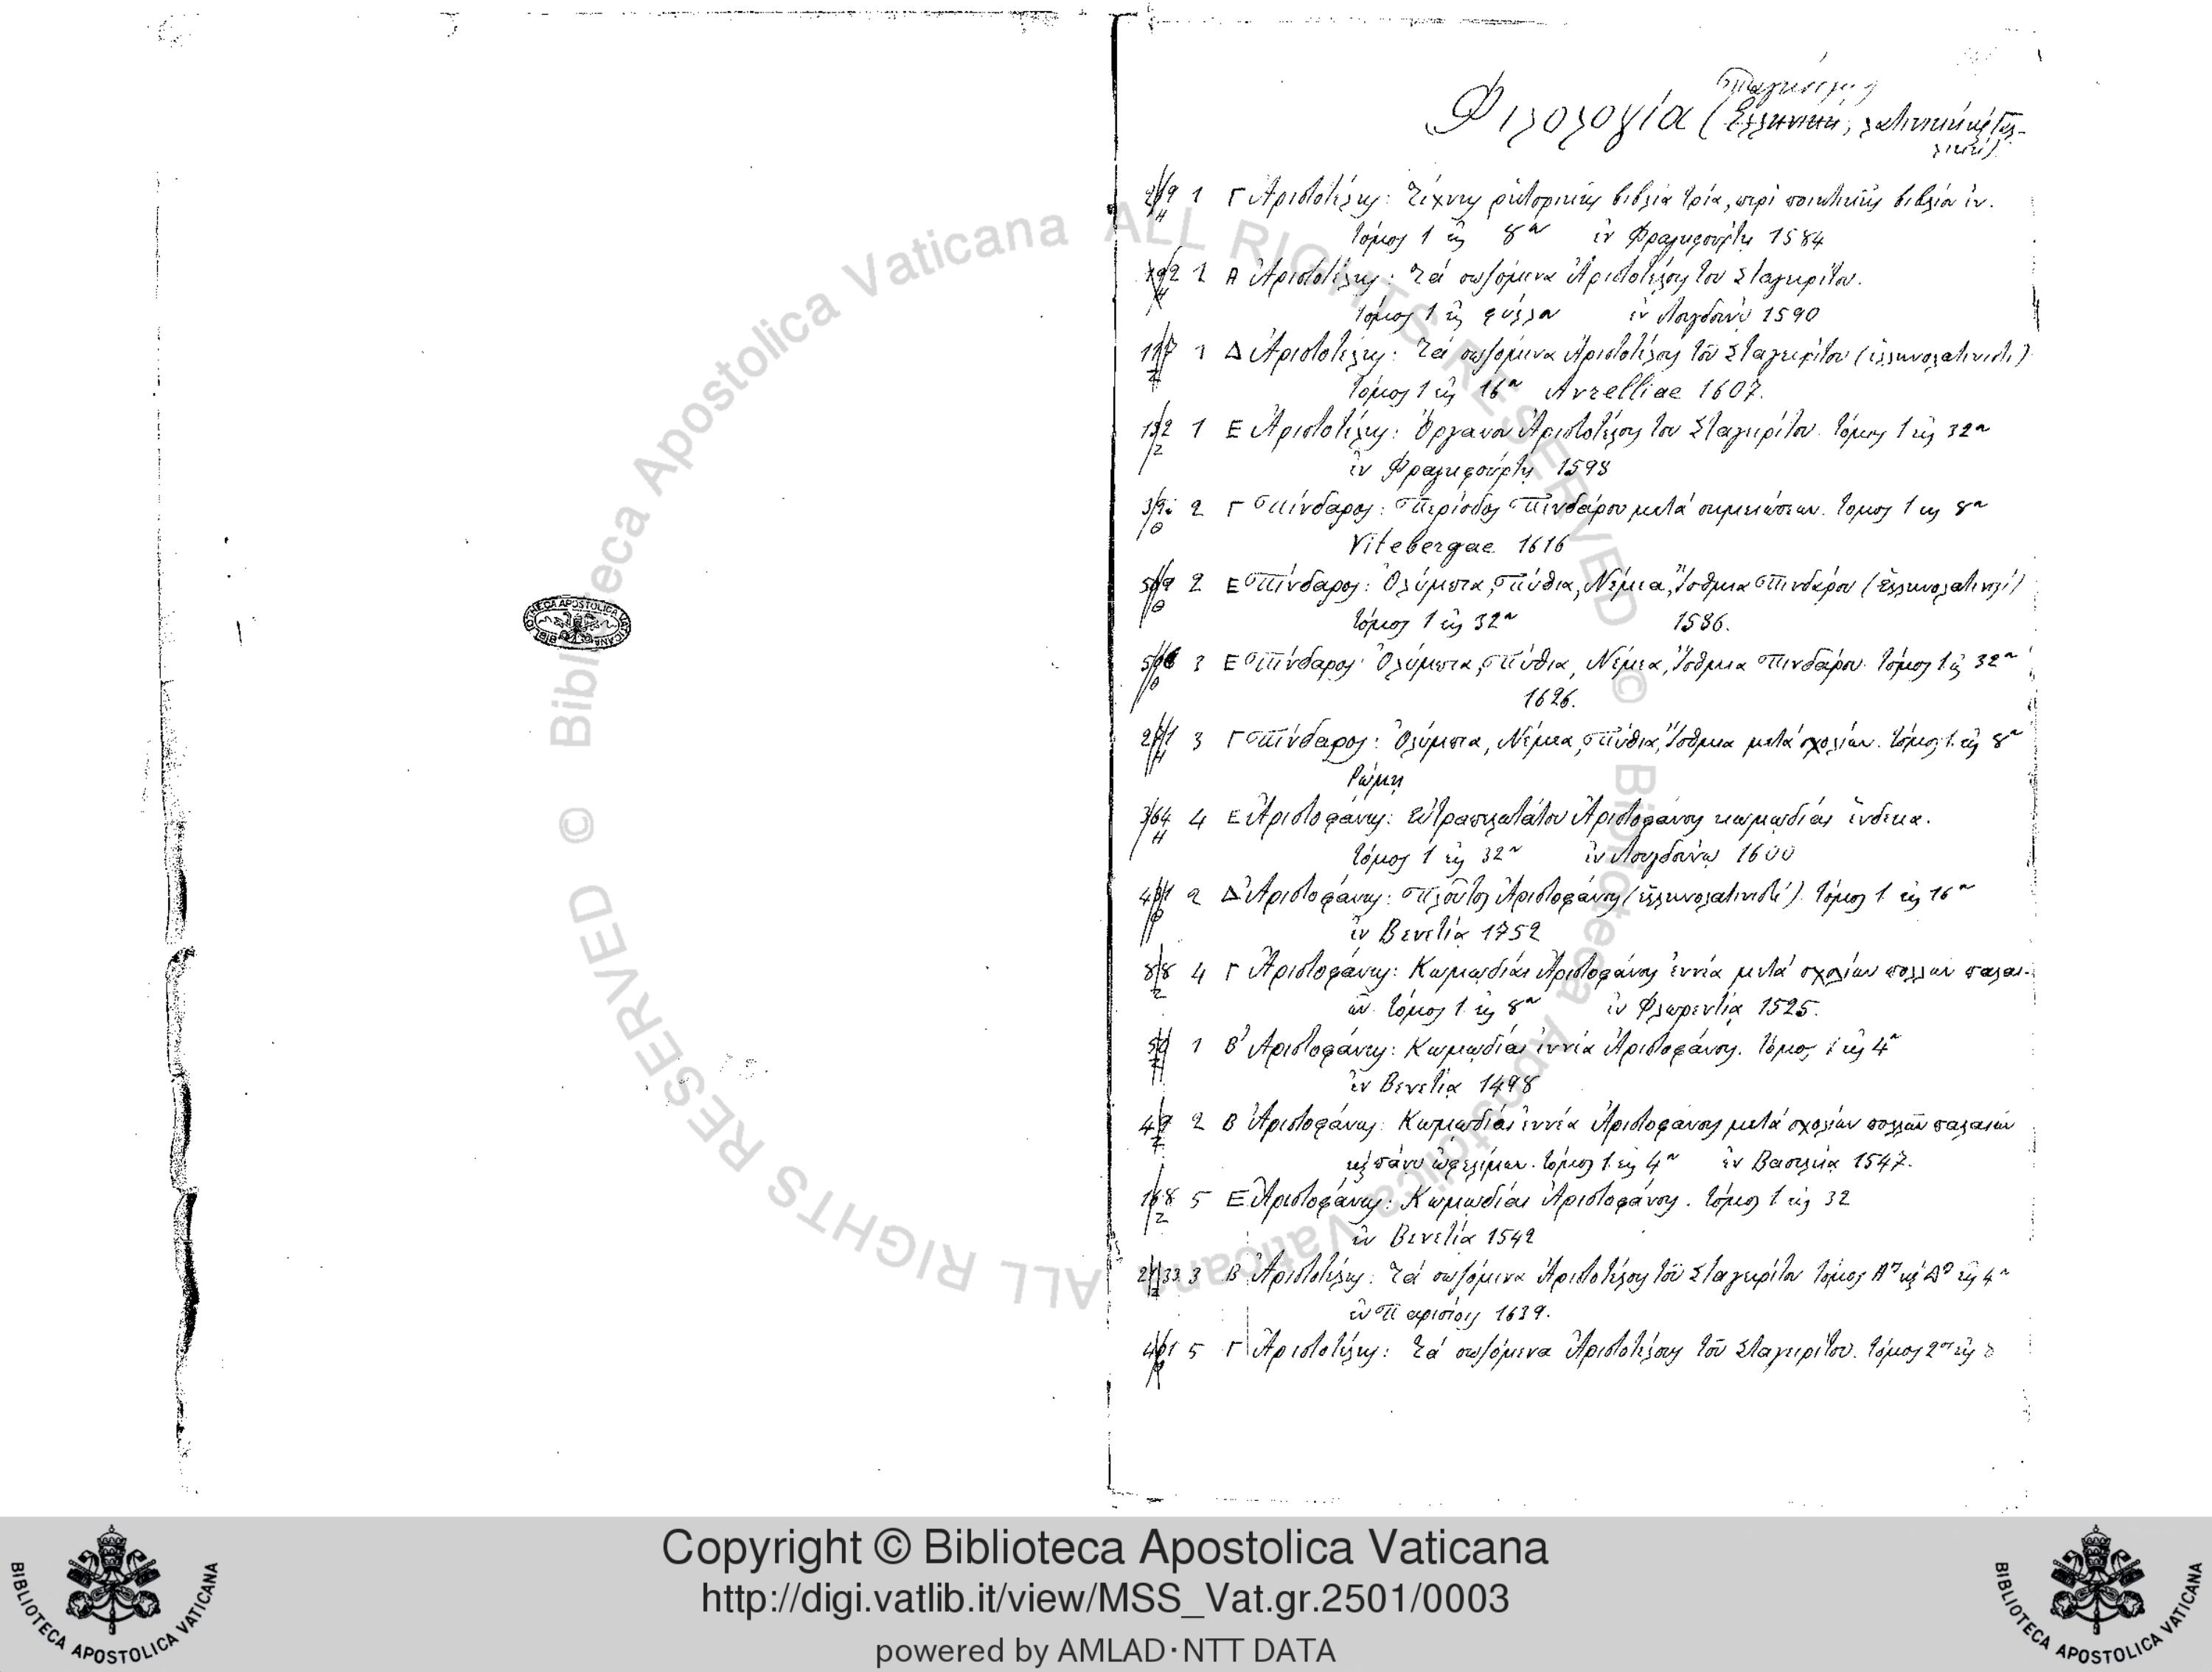 Φιλολογία (Ἑλληνική, λατινική κ̀ Γαλ-
λική)
1 Γ Ἀριστοτέλης: Τέχνης ῥητορικῆς βιβλία τρία, περὶ ποιητικῆς βιβλίον ἑν.
τόμος 1 εἰς 8ον ἐν Φραγκφούρτῃ 1584
1 Α Ἀριστοτέλης: Τά σωζόμενα Ἀριστοτέλους του Σταγειρίτου.
τόμος 1 εἰς φύλλον ἐν Λουγδούνῳ 1590
1 Δ Ἀριστοτέλης: Τά σωζόμενα Ἀριστοτέλους τοῦ Σταγειρίτου (ἑλληνολατινιστί)
τόμος 1 εἰς 16ον Avrelliae 1607.
1 Ε Ἀριστοτέλης: Ὄργανον Ἀριστοτέλους του Σταγειρίτου. τόμος 1 εἰς 32ον
ἐν Φραγκφούρτῃ 1598
2 Γ Πίνδαρος: Περίοδος Πινδάρου μετά σημειώσεων. τομος 1 εις 8ον
Vitebergae 1616
2 Ε Πίνδαρος: Ὀλύμπια, Πύθια, Νέμεα, Ἴσθμια Πινδάρου (Ἑλληνολατινιστί)
τόμος 1 εἰς 32ον 1586.
3 Ε Πίνδαρος: Ὀλύμπια, Πύθια, Νέμεα, Ἴσθμια Πινδάρου. τόμος 1 εἰς 32ον
1626.
3 Γ Πίνδαρος: Ὀλύμπια, Νέμεα, Πύθια, Ἴσθμια μετά σχολίων. τόμος 1. εἰς 8ον
Ρώμῃ
364 Η 4 Ε Ἀριστοφάνης: Εὐτραπελωτάτου Ἀριστοφάνους κωμῳδίαι ἕνδεκα.
τόμος 1 εἰς 32ον ἐν Λουγδούνῳ 1600
2 Δ Ἀριστοφάνης: Πλοῦτος Ἀριστοφάνους (ἑλληνολατινιστί). τόμος 1 εἰς 16ον
ἐν Βενετίᾳ 1752
88 Ζ 4 Γ Ἀριστοφάνης: Κωμῳδίαι Ἀριστοφάνους ἐννέα μετά σχολίων πολλων παλαι-
ῶν. τόμος 1. εἰς 8ον ἐν Φλωρεντίᾳ 1525.
1 Β Ἀριστοφάνης: Κωμῳδίαι ἐννέα Ἀριστοφάνους. τόμος 1 εἰς 4ον
ἐν Βενετίᾳ 1498
2 Β Ἀριστοφάνης: Κωμῳδίαι ἐννέα Ἀριστοφάνους μετά σχολίων πολλῶν παλαιών
κ̀ πάνυ ὠφελίμων. τόμος 1. εἰς 4ον ἐν Βασιλείᾳ 1547.
5 Ε Ἀριστοφάνης: Κωμῳδίαι Ἀριστοφάνους. τόμος 1 εἰς 32
ἐν Βενετίᾳ 1542
3 Β Ἀριστοτέλης: Τά σωζόμενα Ἀριστοτέλους τοῦ Σταγειρίτου τόμος Αος κ̀ Δος εἰς 4ον
ἐν Παρισίοις 1639.
5 Γ Ἀριστοτέλης: Τά σωζόμενα Ἀριστοτέλους τοῦ Σταγειρίτου. τόμος 2ος εἰς 8
BIBLIOTHECA APOSTOLICA VATICANA
© Biblioteca Apostolica Vaticana ALL RIGHTS RESERVED © Biblioteca Apostolica Vaticana ALL RIGHTS RESERVED
Copyright © Biblioteca Apostolica Vaticana
http://digi.vatlib.it/view/MSS_Vat.gr.2501/0003
powered by AMLAD·NTT DATA
BIBLIOTECA APOSTOLICA VATICANA
BIBLIOTECA APOSTOLICA VATICANA